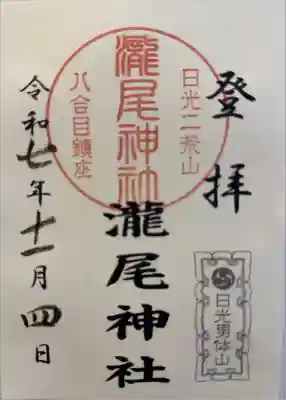 登拝
日光二荒山
瀧尾神社
八合目鎮座
瀧尾神社
日光男体山
令和七年十一月四日